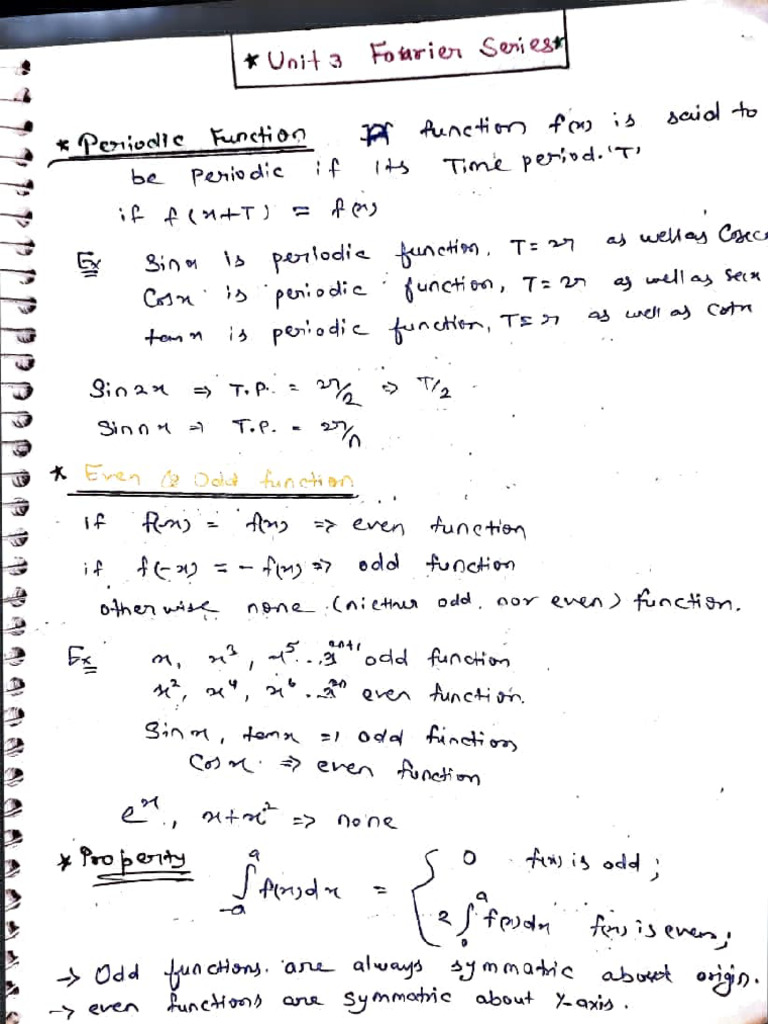 * Unit 3 Fourier Series *
* Periodic Function If function f(x) is said to
be Periodic if its Time period 'T'
if f(x+T) = f(x)
Ex Sinx is periodic function, T = 2π as well as Cosec
Cosx is periodic function, T = 2π as well as Secx
tanx is periodic function, T = π as well as Cotx
Sin2x ⇒ T.P. = 2π/2 ⇒ T/2
Sinnx ⇒ T.P. = 2π/n
* Even & Odd function
If f(-x) = f(x) => even function
if f(-x) = -f(x) => odd function
otherwise none (niether odd, nor even) function.
Ex x, x³, x⁵...x²ⁿ⁺¹ odd function
x², x⁴, x⁶...x²ⁿ even function.
Sinx, tanx => odd function
Cosx => even function
eˣ, x+x² => none
* Property ∫₋ₐᵃ f(x)dx = { 0 f(x) is odd;
2∫₀ᵃ f(x)dx f(x) is even;
→ Odd functions are always symmatric about origin.
→ even functions are symmatric about Y-axis.